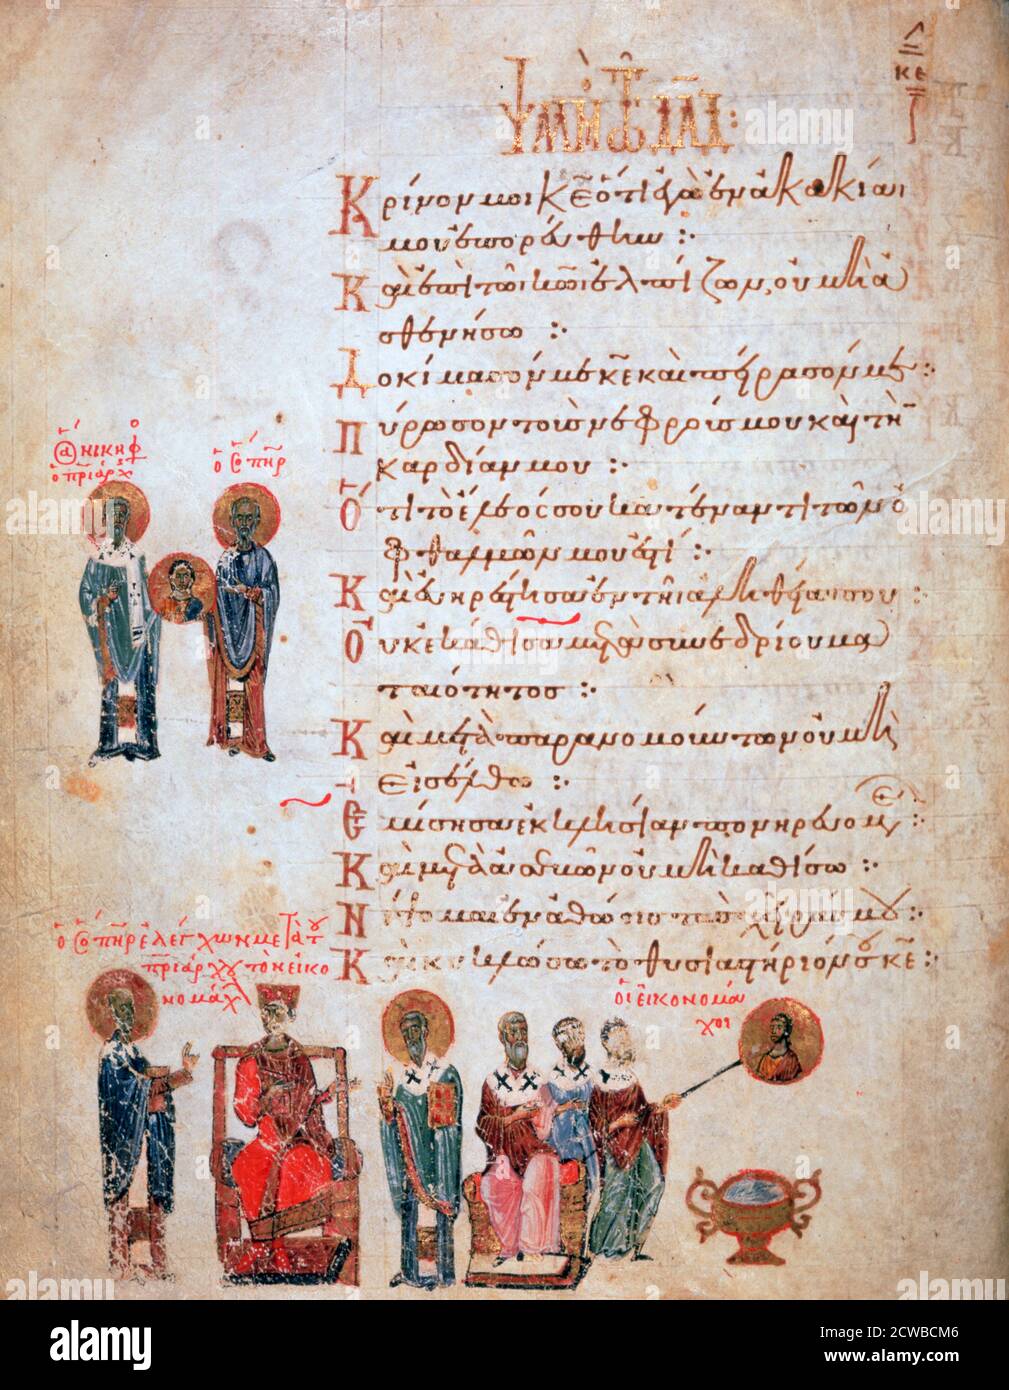 ΚΕ
Κρῖνόν μοι κ̅ε̅ ὅτι ἐγὼ ἐν ἀκακίαι
μου ἐπορεύθην :·
Καὶ ἐπὶ τῶι κ̅ω̅ι ἐλπίζων, οὐ μὴ ἀ
σθενήσω :·
Δοκίμασόν με κ̅ε̅ καὶ πείρασόν με :·
Πύρωσον τοὺς νεφρούς μου καὶ τὴν
καρδίαν μου :·
Ὅτι τὸ ἔλεός σου κατέναντι τῶν ὀ
φθαλμῶν μου ἐστί :·
Καὶ εὐηρέστησα ἐν τῆι ἀληθείαι σου :
Οὐκ ἐκάθισα μετὰ συνεδρίου μα
ταιότητος :·
Καὶ μετὰ παρανομούντων οὐ μὴ
εἰσέλθω :·
Ἐμίσησα ἐκκλησίαν πονηρευομε
Καὶ μετὰ ἀσεβῶν οὐ μὴ καθίσω :·
Νίψομαι ἐν ἀθώοις τὰς χεῖράς μου :·
Καὶ κυκλώσω τὸ θυσιαστήριόν σου κ̅ε̅ :·
ὁ ἅ ΝΙΚΗΦ
ὁ πριάρχ
ὁ ὅσ πηρ
ὁ ὅσ πηρ ἐλέγχων μετὰ τ
πριάρχου τὸν εἰκο
νομάχ
οἱ εἰκονομά
χοι
alamy
Image ID: 2CWBCM6
www.alamy.com